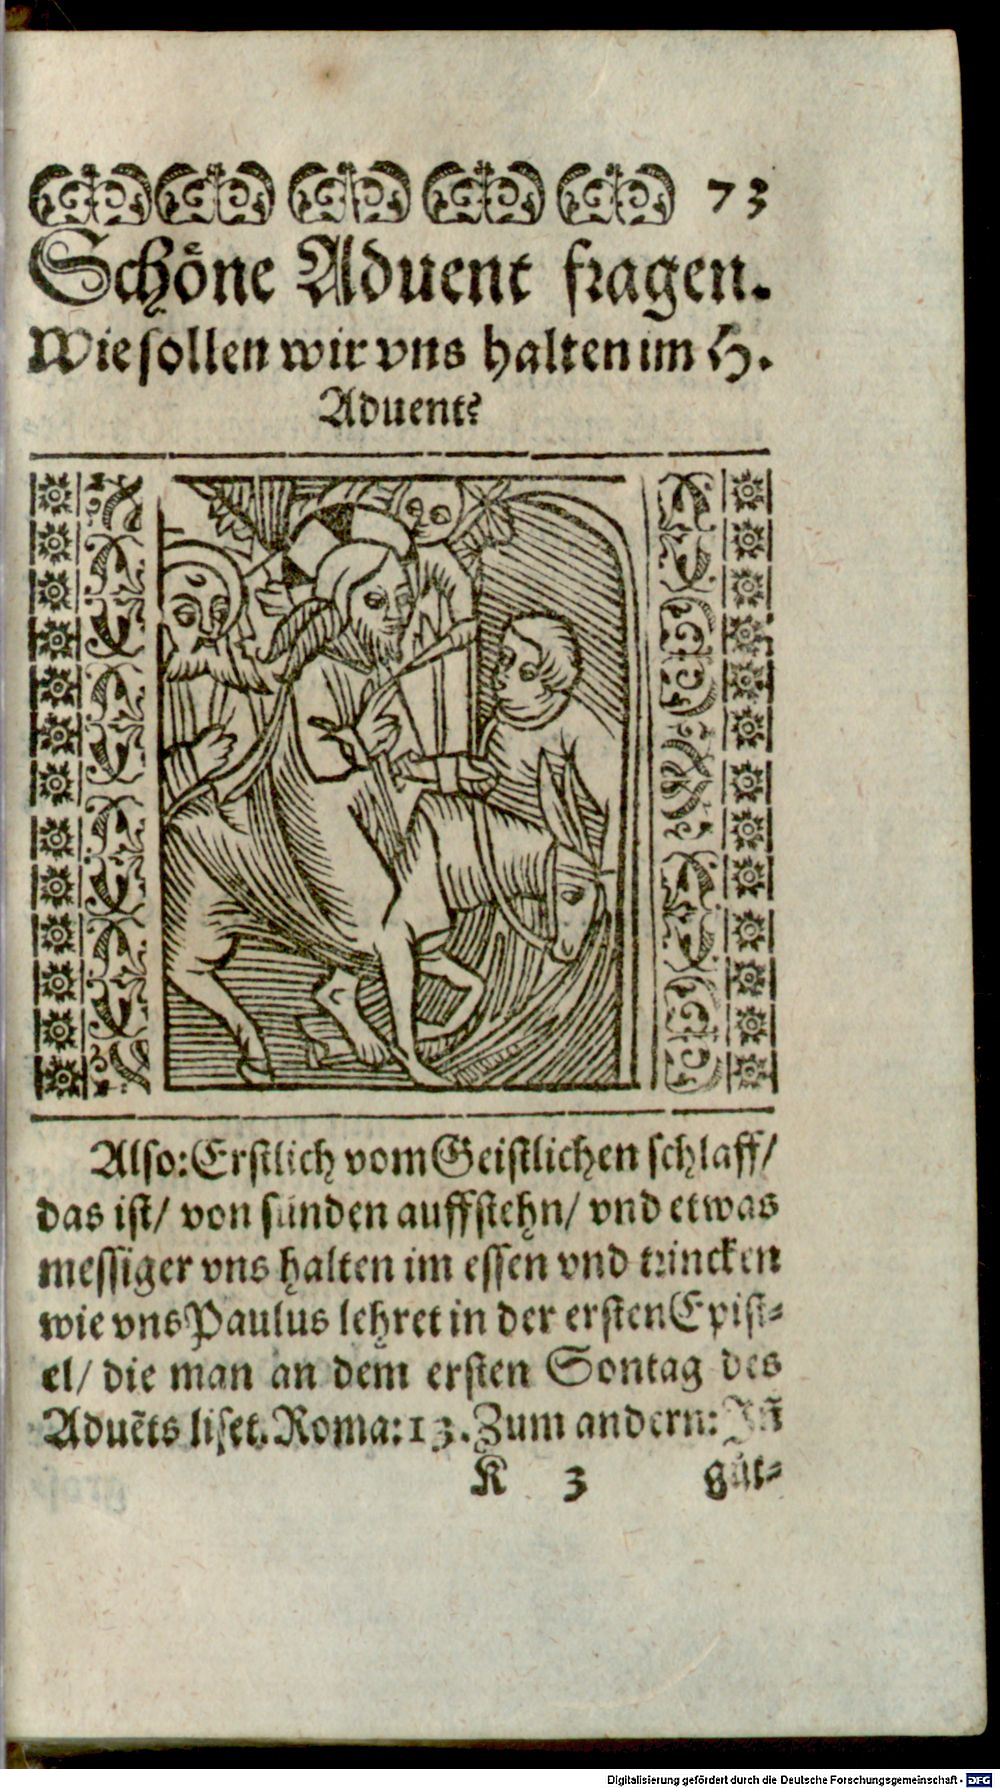 73
Schöne Aduent fragen.
Wie sollen wir vns halten im H.
Aduent?
Also: Erstlich vom Geistlichen schlaff/
das ist/ von sünden auffstehn/ vnd etwas
messiger vns halten im essen vnd trincken
wie vns Paulus lehret in der ersten Epist-
el/ die man an dem ersten Sontag des
Aduẽts liset. Roma: 13. Zum andern: Jñ
K 3 güt-
Digitalisierung gefördert durch die Deutsche Forschungsgemeinschaft - DFG